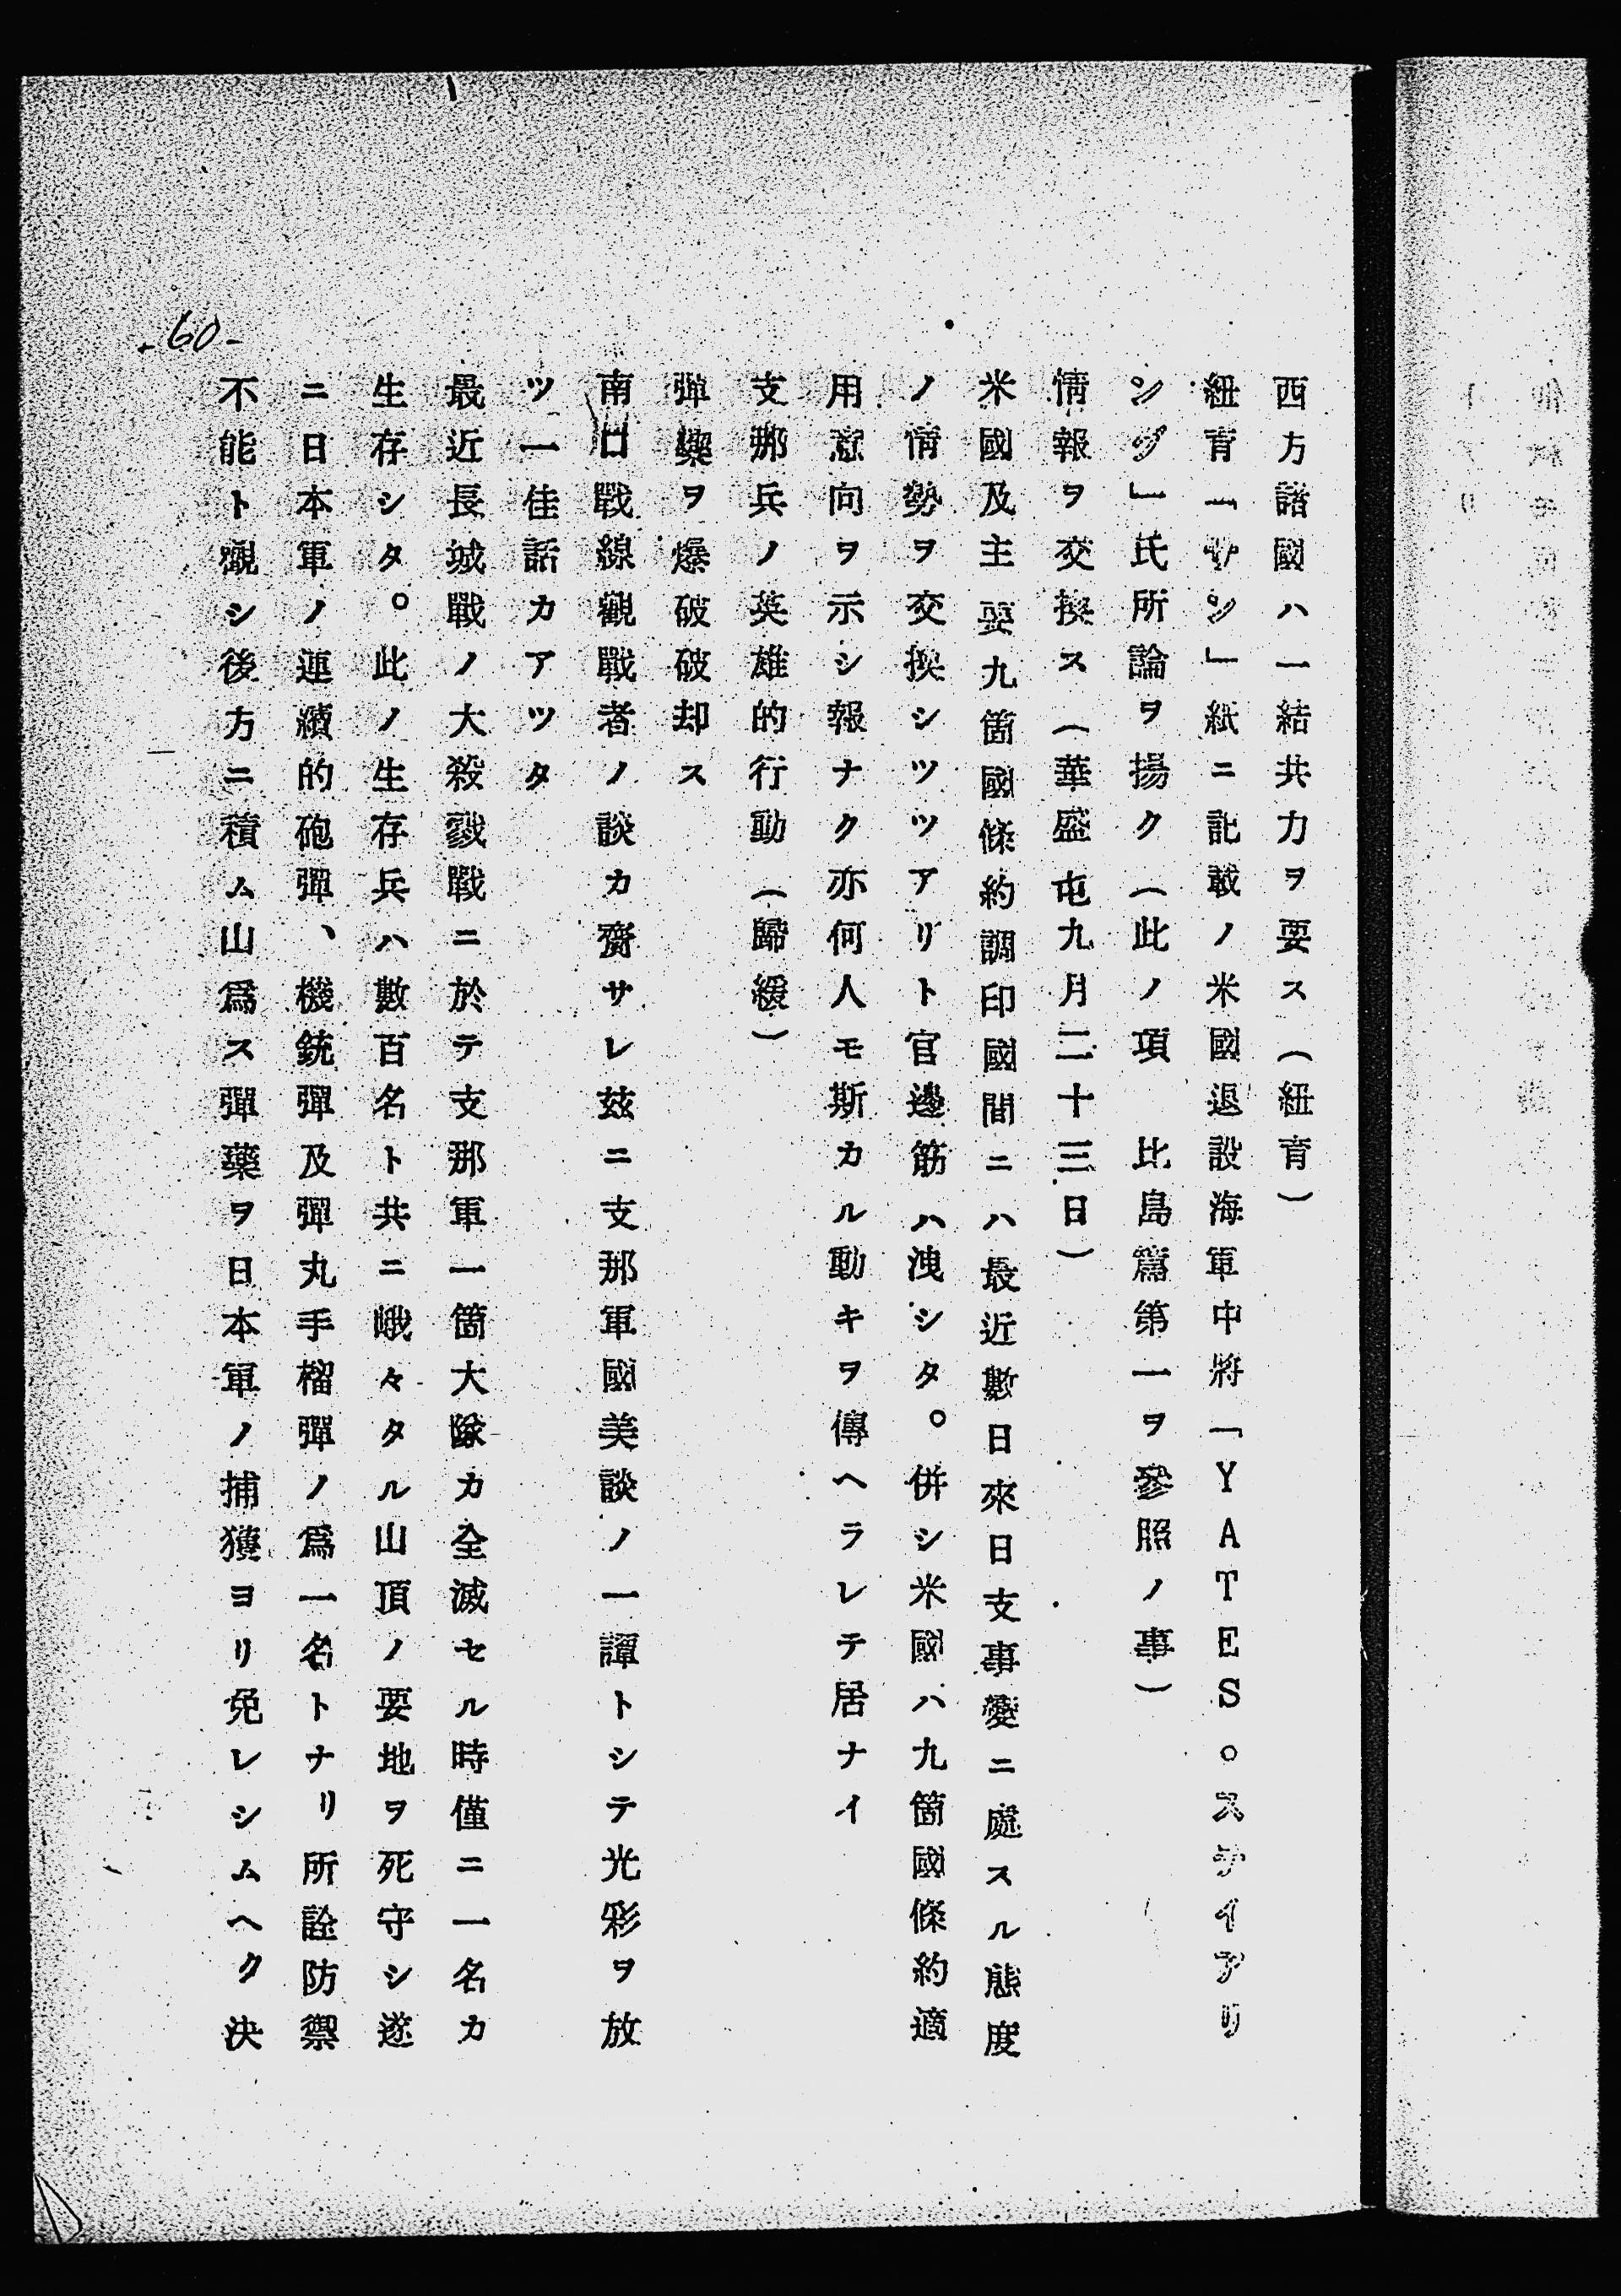 西方諸國ハ一結共力ヲ要ス（紐育）
紐育「サン」紙ニ記載ノ米國退設海軍中將「YATES。スティアリ
ング」氏所論ヲ揚ク（此ノ項　比島篇第一ヲ參照ノ事）
情報ヲ交換ス（華盛屯九月二十三日）
米國及主要九箇國條約調印國間ニハ最近數日來日支事變ニ處スル態度
ノ情勢ヲ交換シツツアリト官邊筋ハ洩シタ。併シ米國ハ九箇國條約適
用意向ヲ示シ報ナク亦何人モ斯カル動キヲ傳ヘラレテ居ナイ
支那兵ノ英雄的行動（歸綏）
彈藥ヲ爆破破却ス
南口戰線觀戰者ノ談カ齎サレ茲ニ支那軍國美談ノ一譚トシテ光彩ヲ放
ツ一佳話カアツタ
最近長城戰ノ大殺戮戰ニ於テ支那軍一箇大隊カ全滅セル時僅ニ一名カ
生存シタ。此ノ生存兵ハ數百名ト共ニ峨々タル山頂ノ要地ヲ死守シ遂
ニ日本軍ノ連續的砲彈、機銃彈及彈丸手榴彈ノ爲一名トナリ所詮防禦
不能ト觀シ後方ニ積ム山爲ス彈藥ヲ日本軍ノ捕獲ヨリ免レシムヘク決
-60-